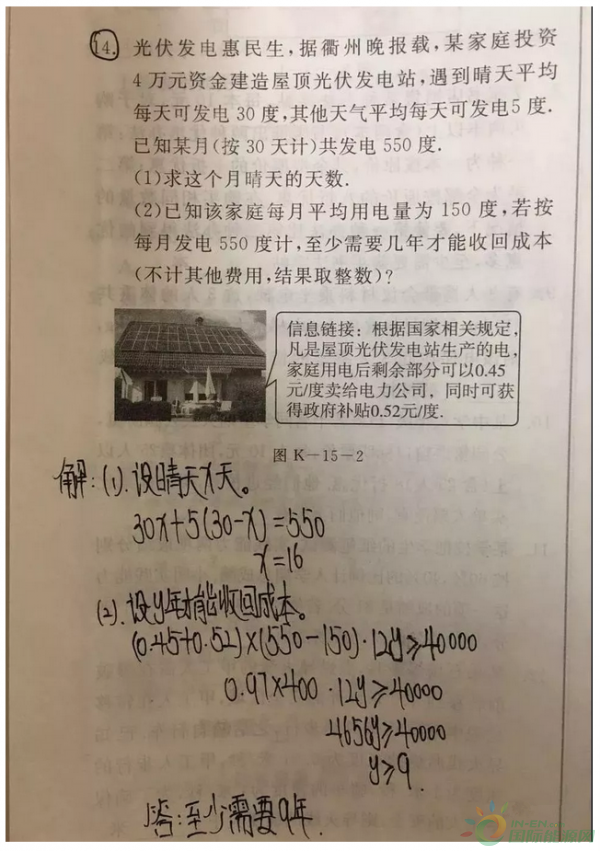 14. 光伏发电惠民生，据衢州晚报载，某家庭投资
4万元资金建造屋顶光伏发电站，遇到晴天平均
每天可发电30度，其他天气平均每天可发电5度.
已知某月(按30天计)共发电550度.
(1)求这个月晴天的天数.
(2)已知该家庭每月平均用电量为150度，若按
每月发电550度计，至少需要几年才能收回成本
(不计其他费用，结果取整数)?
信息链接：根据国家相关规定，
凡是屋顶光伏发电站生产的电，
家庭用电后剩余部分可以0.45
元/度卖给电力公司，同时可获
得政府补贴0.52元/度.
图 K-15-2
解：(1).设晴天x天。
30x+5(30-x)=550
x=16
(2).设y年才能收回成本。
(0.45+0.52)×(550-150)·12y≥40000
0.97×400·12y≥40000
4656y≥40000
y≥9.
答：至少需要9年.
IN-EN.com
国际能源网